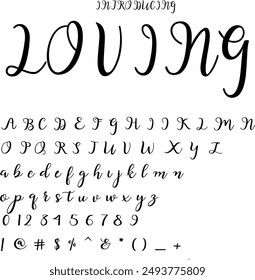 INTRODUCING
LOVING
A B C D E F G H I J K L M N
O P Q R S T U V W X Y Z
a b c d e f g h i j k l m n
o p q r s t u v w x y z
0 1 2 3 4 5 6 7 8 9
! @ # $ % ^ & * ( ) _ +
shutterstock.com · 2493775809